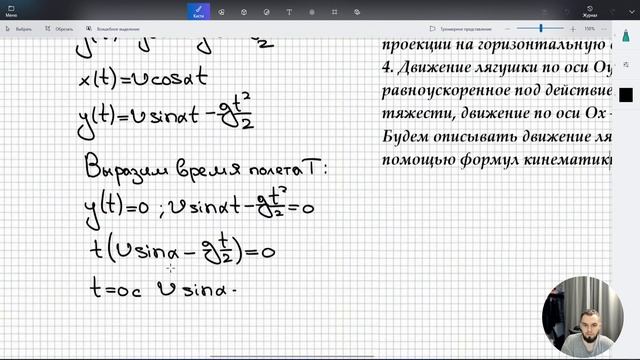 Меню
Кисти
Журнал
Выбрать
Обрезать
Волшебное выделение
Трехмерное представление
150%
x(t)=υcosαt
y(t)=υsinαt-gt²/2
Выразим время полета T:
y(t)=0 ; υsinαt-gt²/2=0
t(υsinα-gt/2)=0
t=0c υsinα-
проекции на горизонтальную
4. Движение лягушки по оси Oy
равноускоренное под действие
тяжести, движение по оси Ox -
Будем описывать движение ля
помощью формул кинематик